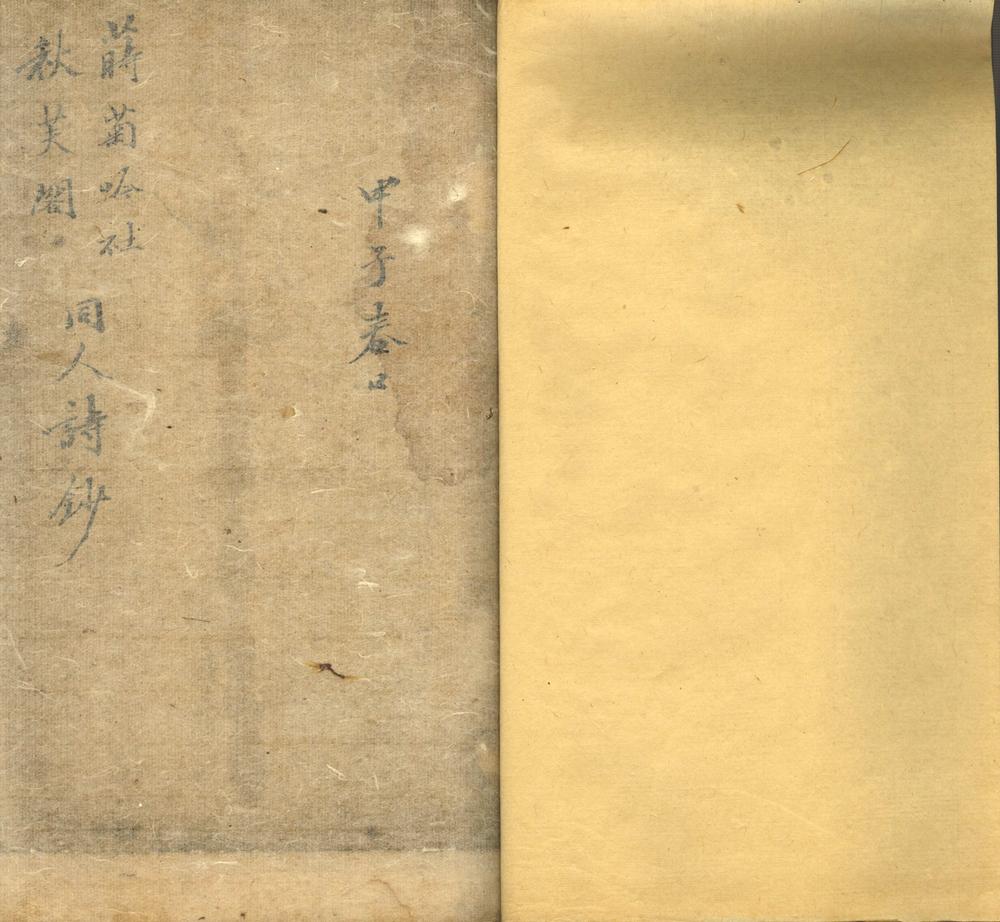 甲子春日
蒔菊吟社
秋芙閣
同人詩鈔